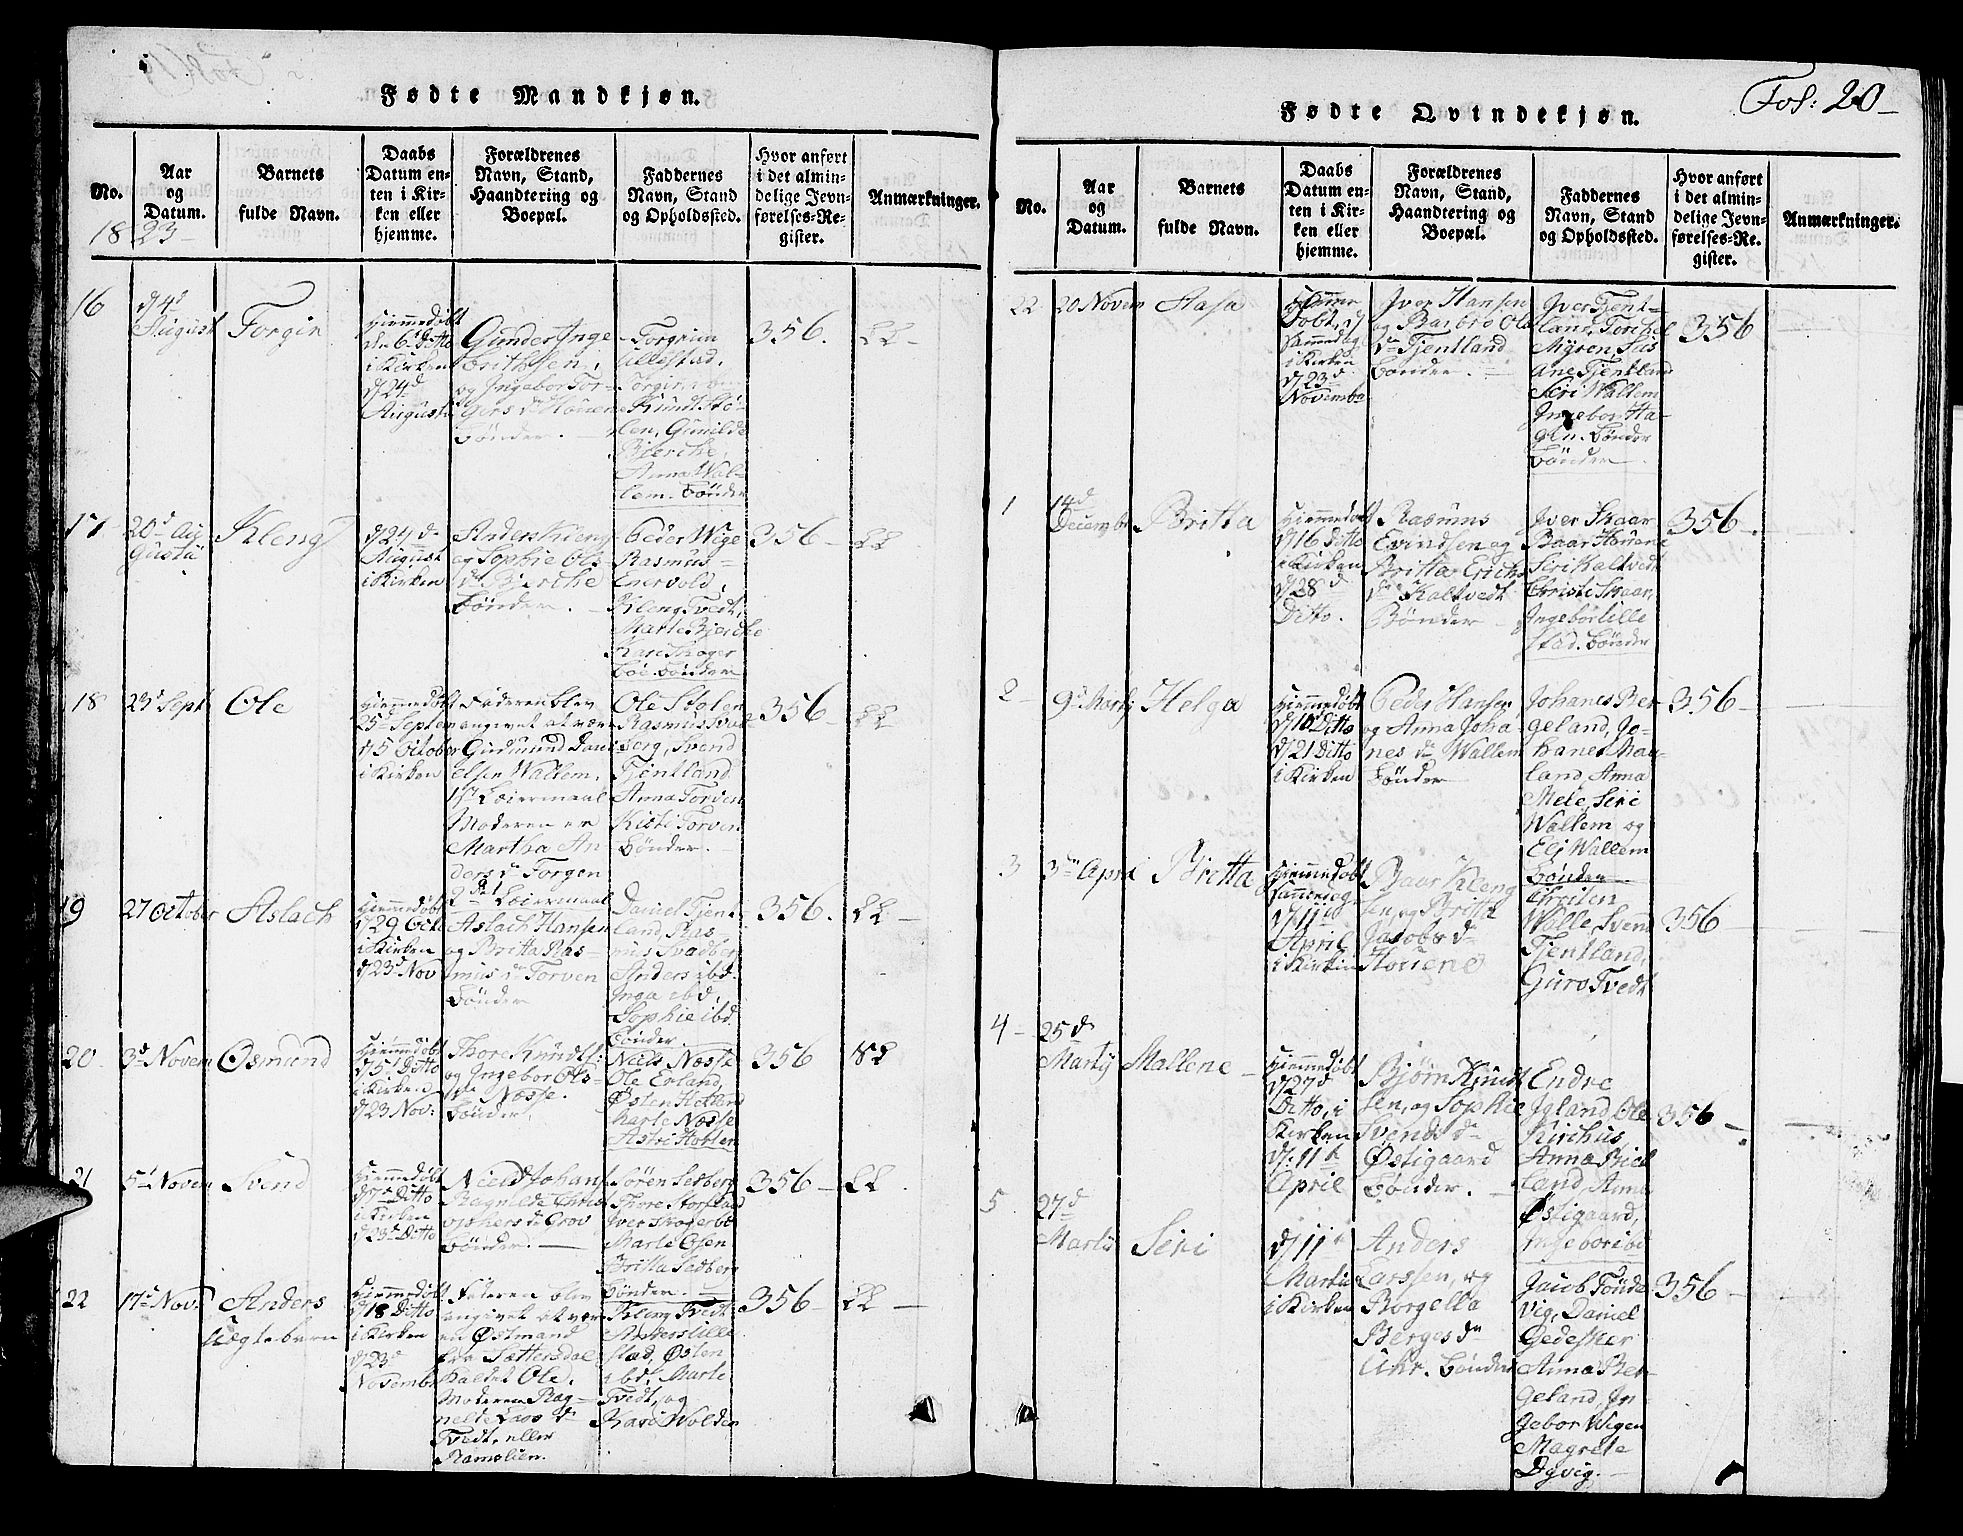 Fødte Mandkjøn.
No.
Aar
og
Datum.
Barnets
fulde Navn.
Daabs
Datum en-
ten i Kir-
ken eller
hjemme.
Forældrenes
Navn, Stand,
Haandtering og
Boepæl.
Faddernes
Navn, Stand
og Opholdssted.
Hvor anført
i det almin-
delige Jevn-
førelses-Re-
gister.
Anmærkninger.
1823
16
d/4d
August
Torgin
Hiemmedøbt
d 6d Ditto
i Kirken
d/24d
August
Gunder Inge
brithsen,
og Ingebor Tor-
gers dr Houen
Bønder.
Torgrim
Lillestad,
Knud Stø-
len, Gunilde
Bjerche,
Anna Wal-
lem. Bønder
356.
17
20d Au
gusti
Kleng
d/24d
August
i Kirken
Anders Kleng
og Sophie Ols
dr Bjerche
Bønder.
Peder Wige
Rasmus
Enervold,
Kleng Tvedt,
Marte Bjerche
Kari Skoger
boe. Bønder
356
18
23d Sept
Ole
Hiemmedøbt
25d Septem
d/5 October
i Kirken
Faderen blev
angivet at være
Gudmund Dani
elsen Wallem,
1ste Leiermaal
Moderen er
Martha An
ders dr Torgen
2det Leiermaal
Ole Stolen
Rasmus Svad
berg, Svend
Tjentland
Anna Torven
Kisti Torven
Bønder.
356
19
27 October
Aslach
Hiemmedøbt
d/29 Octo
i Kirken
d/23d Nov
Aslach Hansen
og Britta Ras-
mus dr Torven
Bønder
Daniel Tjent
land Ras-
mus Svadber
Anders ibd.
Inga ibd,
Sophie ibd
Bønder.
356.
20
3d Novem
Osmund
Hiemmedøbt
d/5d Ditto
i Kirken
d/23 Nov:
Thore Knuds:
og Ingebor Ols-
dr Næsse.
Bønder.
Niels Næsse
Ole Erland,
Østen Hetland
Marte Næsse
Astri Hovlen
356
21
5d Novem
Svend
Hiemmedøbt
d/7d Ditto
i Kirken
d/23d Ditto
Nield Johans
Ragnilde Chris
tophers dr Grov
Bønder.
Søren Sedberg
Thore Norstad
Iver Skogerbø
Marte Osen
Britta Sedberg
Bønder.
356
22
17d Nov:
Anders
Uægtebarn
Hiemmedøbt
d/18 Ditto
i Kirken
d/23d
Novembr
Faderen blev
angivet at vær
en Østmand
fra Sættersdal
kaldet Ole.
Moderen Rag-
nelde Lars dr
Tvedt, eller
Ramslien.
Kleng Tvedt
Anders Lille
stad, Østen
ibd, Marte
Tvedt, og
Kari Wolden
356
Fol: 20
Fødte Qvindekjøn.
No.
Aar
og
Datum.
Barnets
fulde Navn.
Daabs
Datum en-
ten i Kir-
ken eller
hjemme.
Forældrenes
Navn, Stand,
Haandtering og
Boepæl.
Faddernes
Navn, Stand
og Opholdssted.
Hvor anført
i det almin-
delige Jevn-
førelses-Re-
gister.
Anmærkninger.
22
20 Novem
Aasa
Hiemme
Døbt, d
Samedag
i Kirken
d/23d
Novembr
Iver Hansen
og Barbro Ola
dr Tjentland
Bønder.
Iver Tjent-
land, Torchel
Myren, Sus
ane Tjentland
Seri Wallem
Ingebor Ha-
gen. Bønder
Bønder
356
1
14d
Decembr
Britta
Hiemmedøbt
d/16 Ditto
i Kirken
d/28d
Ditto.
Rasmus
Evindsen og
Britta Erichs
dr Kaltvedt
Bønder
Iver Skaar
Baar Houene
Seri Kaltvedt
Christi Skaar,
Ingebor Lille
stad. Bønder
356
2
9d Marti
Helga
Hiemmedøbt
d/10 Ditto
d/21 Ditto
i Kirken
Peder Hansen
og Anna Joha
nes dr Wallem
Bønder
Johanes Ber
geland, Jo-
hanes Mau-
land, Anna
Mele, Seri
Wallem og
Eli Wallem
Bønder
356
3
3d April
Britta
Hiemmedøbt
Sammedag
d/11d
April
i Kirken
Baar Kleng
sen, og Britta
Jacobs dr
Houene
Christen
Walle, Svend
Tjentland,
Guro Tvedt
356
4
25d
Marty
Mallene
Hiemmedøbt
d/27d
Ditto, i
Kirken
d/11t
April
Bjørn Knudt
sen, og Sophie
Svends dr
Østigaard
Bønder.
Endre
Igland, Ole
Kirchus,
Anna Biel
land, Anna
Østigaard,
Ingebor ibd
356
5
27d
Marty
Seri
d/11t
Marti
i Kirken
Anders
Larssen, og
Borgella
Berges dr
Uhr. Bønder
Jacob Tønde
vig, Daniel
Gedesker
Anna Ber-
geland, In
gebor Wigen
Magrete
Dyvig.
356